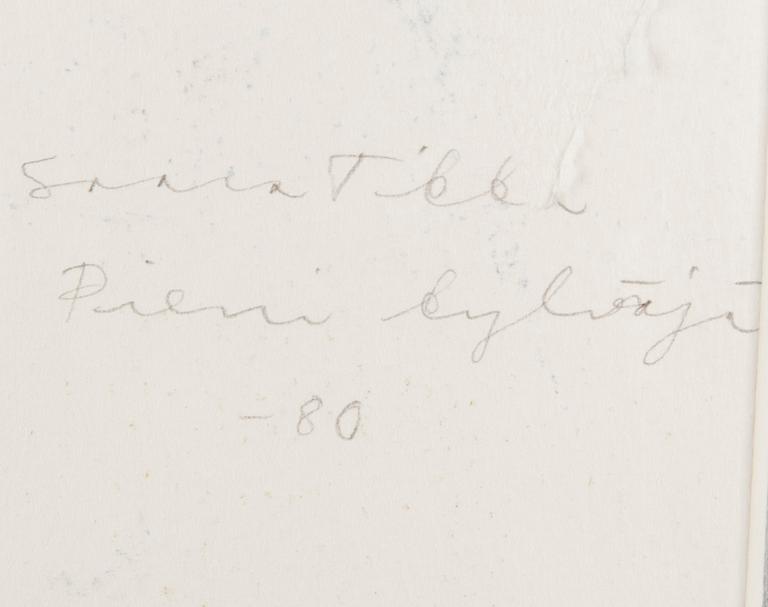 Saara Tikka
Pieni kylvääjä
-80